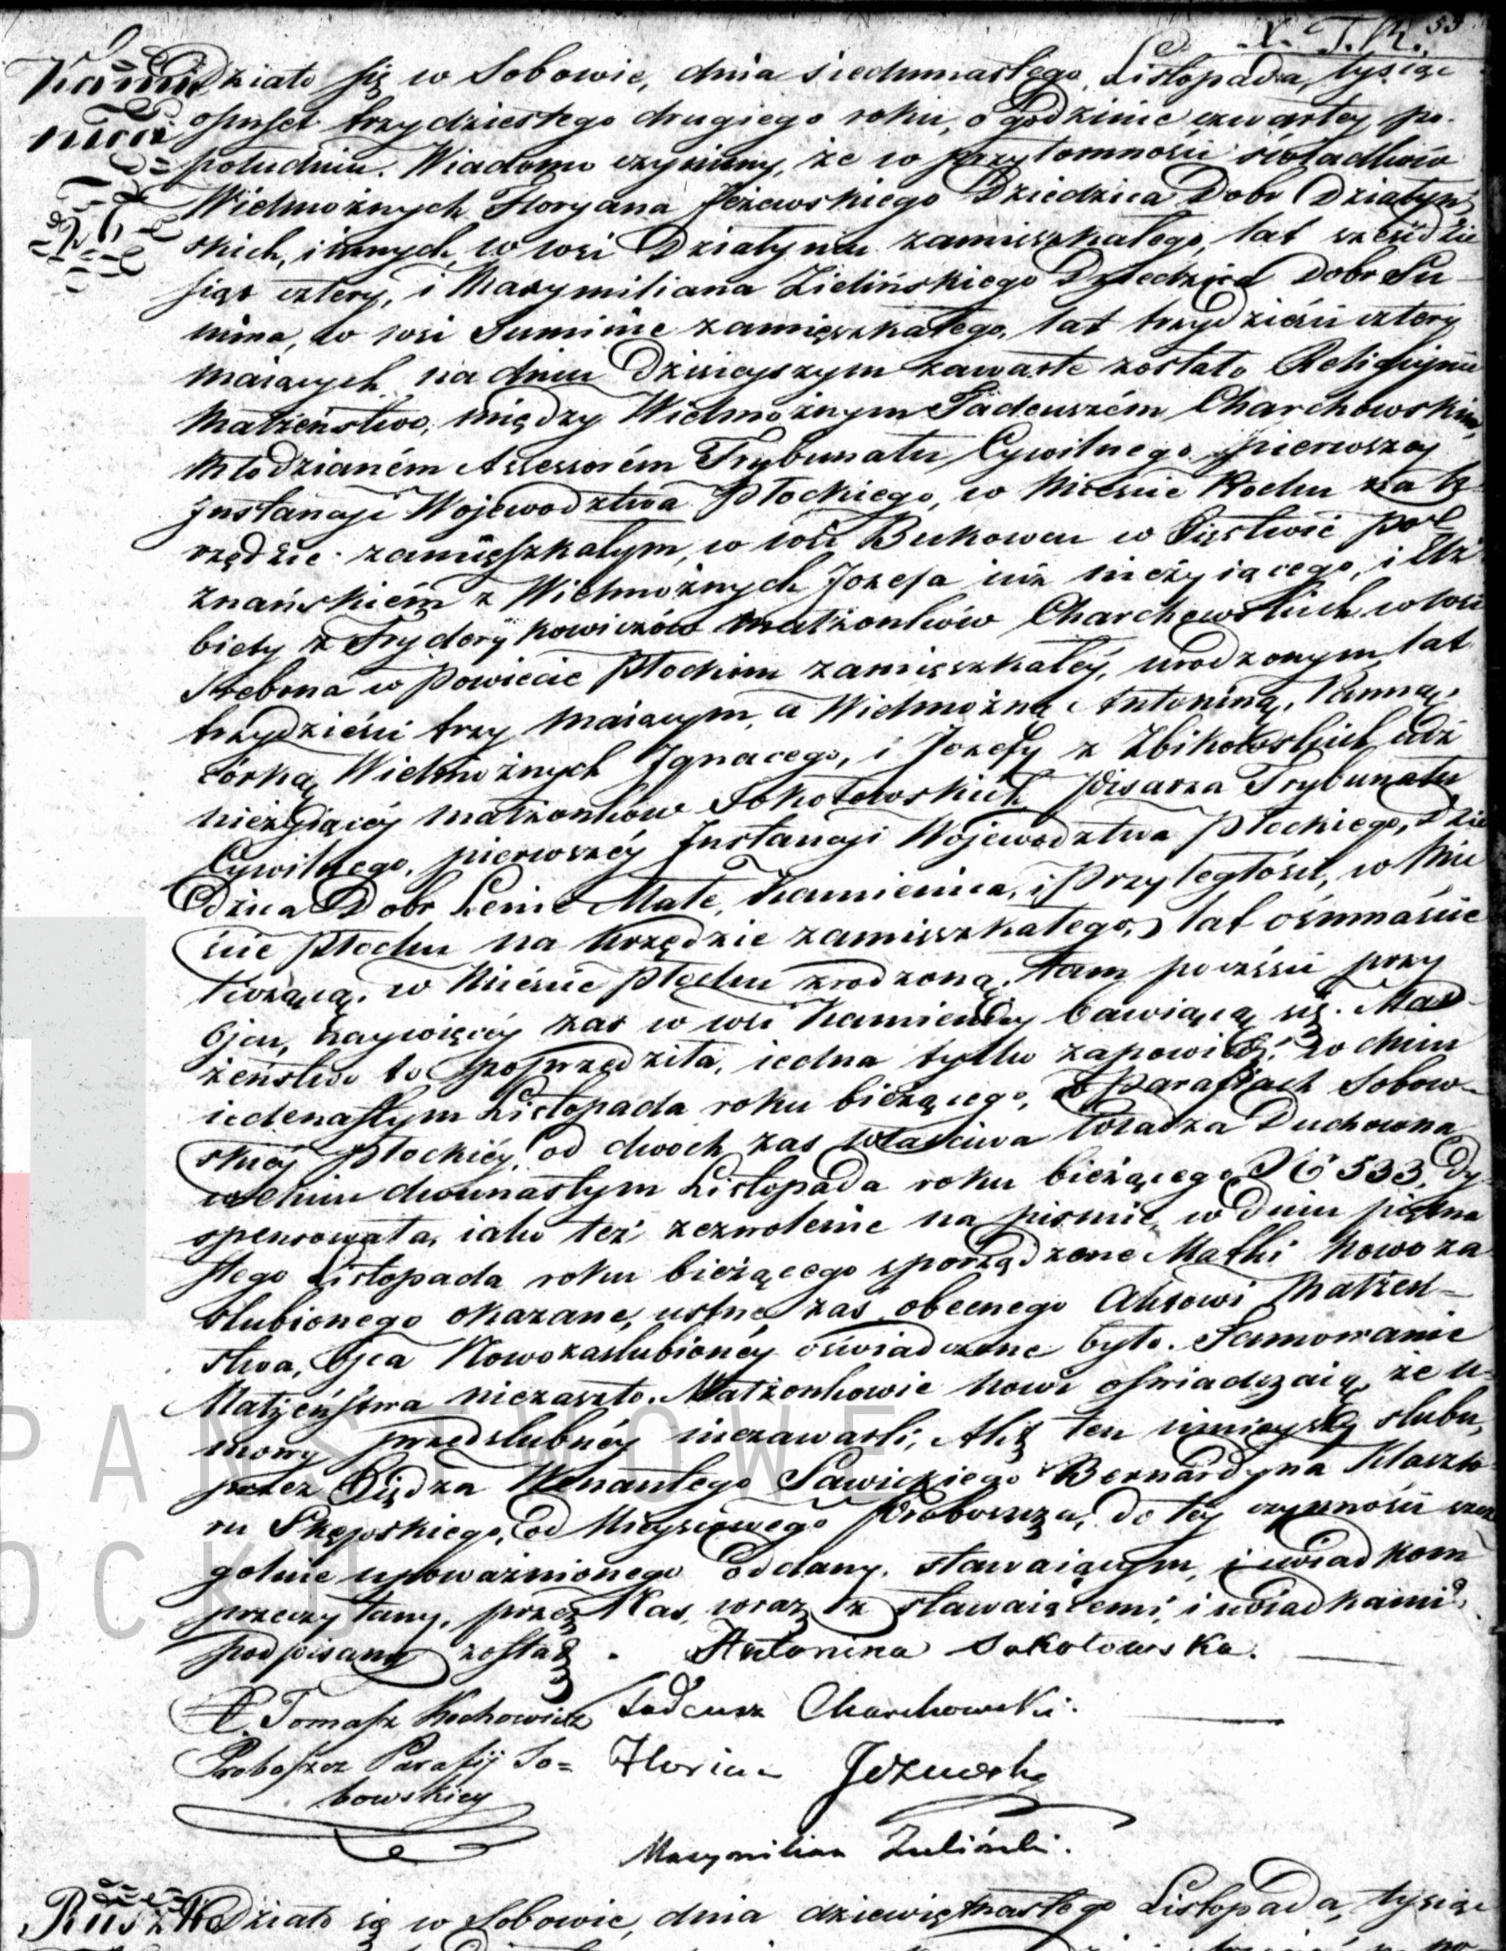 53
Kamie Działo się w Sobowie, dnia siedmnastego Listopada, tysiąc
nica ośmset trzydziestego drugiego roku, o godzinie czwartey po
południu. Wiadomo czynimy, że w przytomności świadków
Wielmożnych Floryana Jeżewskiego Dziedzica Dobr Działyń
skich, i innych, w wsi Działyniu zamieszkałego, lat sześćdzie
siąt cztery, i Maxymiliana Zielińskiego Dziedzica Dobr Su
mina, w wsi Suminie zamięszkałego, lat trzydzieści cztery
maiących, na dniu dzisieyszym zawarte zostało Religijne
Małżeństwo, między Wielmożnym Tadeuszém Charchowskim,
Młodzianém Assessorém Trybunału Cywilnego pierwszey
Instancyi Województwa Płockiego, w Mieście Płocku na U
rzędzie zamięszkałym, w wsi Bukowcu w Xięstwie Po
znańskiém z Wielmożnych Jozefa iuż nieżyiącego, i Elż
biety z Frydrykowiczów małżonków Charchowskich w wsi
w Powiecie Płockim zamięszkałéy, urodzonym, lat
trzydzieści trzy maiącym, a Wielmożną Antoniną, Panną,
córką Wielmożnych Ignacego, i Jozefy z Zbikowskich iuż
nieżyiącéy małżonków Sokołowskich, Pisarza Trybunału
Cywilnego, pierwszéy Instancyi Województwa Płockiego, Dzie
dzica Dobr Lenie Małe, Kamienica, i Przyległości, w Mie
ście Płocku na Urzędzie zamieszkałego, lat ośmnaście
liczącą, w Mieście Płocku zrodzoną, tam po części przy
Ojcu, naywięcéy zaś w wsi Kamienicy bawiącą się. Mał
żeństwo to poprzedziła, iedna tylko zapowiedź, w dniu
iedenastym Listopada roku bieżącego, w Parafiach Sobow-
skiéy Płockiéy, od dwoch zaś właściwa Władza Duchowna
w dniu dwunastym Listopada roku bieżącego N° 533, dy
spensowała, iako też zezwolenie na piśmie, w dniu piętna
stego Listopada roku bieżącego sporządzone Matki Nowoza
ślubionego okazane, ustne zaś obecnego Aktowi Małżeń-
stwa, Ojca Nowozaślubionéy oświadczone było. Tamowanie
Małżeństwa niezaszło. Małżonkowie nowi oświadczaią, że u-
mowy przedślubnéy niezawarli, Akt ten ninieyszy ślubu,
przez Xiędza Wenantego Sawickiego Bernardyna Klaszto
ru Skępskiego, od Mieyscowego Proboszcza, do téy czynności szcze
gólnie upoważnionego oddany, stawaiącym, i świadkom
przeczytany, przez Nas, wraz z stawaiącemi, i świadkami
podpisany został. Antonina Sokołowska.
X. Tomasz Kochowicz Tadeusz Charchowski.
Proboszcz Parafij So= Florian Jeżewski
bowskiey
Maxymilian Zieliński.
Działo się w Sobowie, dnia dziewiętnastego Listopada, tysiąc
PAŃSTWOWE
OCKU